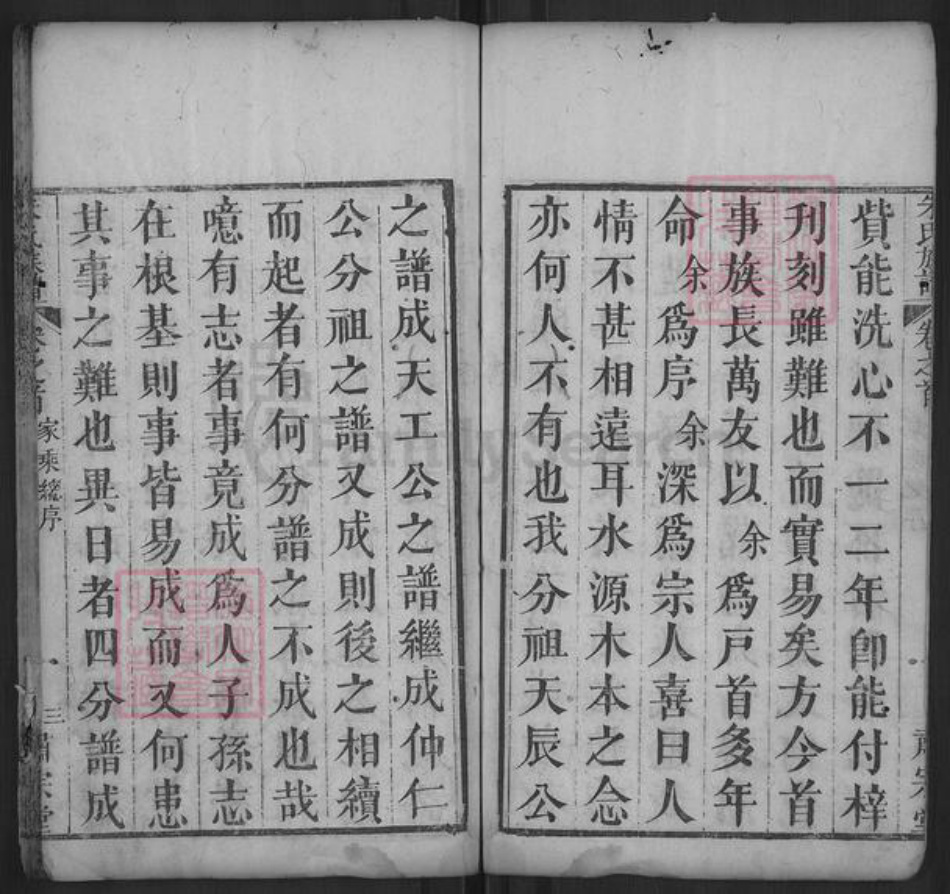 貲能洗心不一二年卽能付梓
刊刻雖難也而實易矣方今首
事族長萬友以余爲戸首多年
命余爲序余深爲宗人喜曰人
情不甚相遠耳水源木本之念
亦何人不有也我分祖天辰公
之譜成天工公之譜繼成仲仁
公分祖之譜又成則後之相續
而起者有何分譜之不成也哉
噫有志者事竟成爲人子孫志
在根基則事皆易成而又何患
其事之難也異日者四分譜成
家乘總序
三